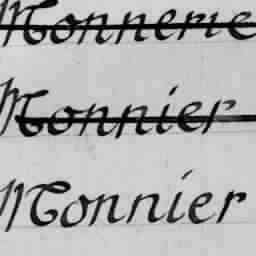 Monnerie
Monnier
Monnier